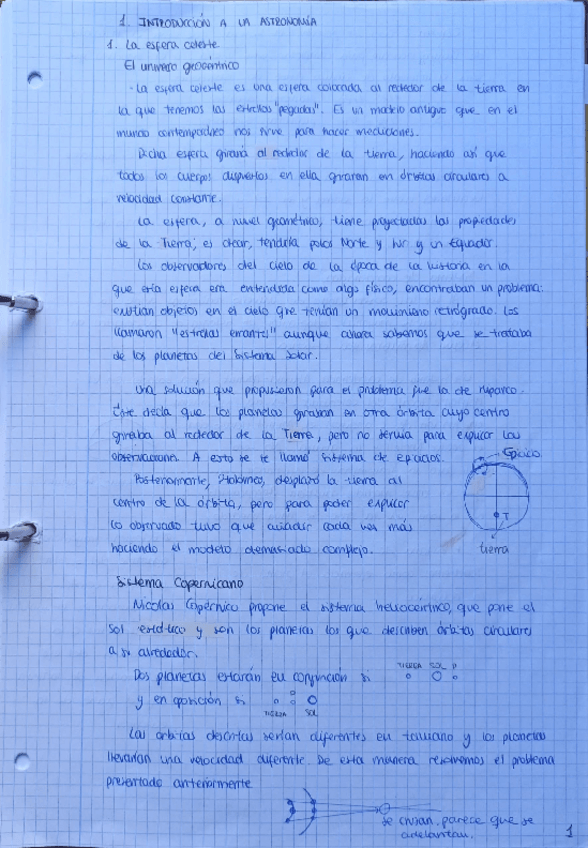 1. INTRODUCCIÓN A LA ASTRONOMÍA
1. La esfera celeste
El universo geocéntrico
· La esfera celeste es una esfera colocada al rededor de la tierra en
la que tenemos las estrellas "pegadas". Es un modelo antiguo que en el
mundo contemporáneo nos sirve para hacer mediciones.
Dicha esfera giraría al rededor de la tierra, haciendo así que
todos los cuerpos dispuestos en ella giraran en órbitas circulares a
velocidad constante.
La esfera, a nivel geométrico, tiene proyectadas las propiedades
de la Tierra; es decir, tendría polos Norte y Sur y un Ecuador.
Los observadores del cielo de la época de la historia en la
que esta esfera era entendida como algo físico, encontraban un problema:
existían objetos en el cielo que tenían un movimiento retrógrado. Los
llamaron "estrellas errantes" aunque ahora sabemos que se trataba
de los planetas del Sistema Solar.
Una solución que propusieron para el problema fue la de Hiparco.
Éste decía que los planetas giraban en otra órbita cuyo centro
giraba al rededor de la Tierra, pero no servía para explicar las
observaciones. A esto se le llamó sistema de epiciclos.
Epiciclo
Posteriormente, Ptolomeo, desplazó la tierra al
centro de la órbita, pero para poder explicar
lo observado tuvo que añadir cada vez más
haciendo el modelo demasiado complejo.
T
tierra
Sistema Copernicano
Nicolas Copérnico propone el sistema heliocéntrico, que pone el
Sol estático y son los planetas los que describen órbitas circulares
a su alrededor.
Dos planetas estarán en conjunción si
TIERRA SOL P
y en oposición si
TIERRA SOL
Las órbitas descritas serían diferentes en tamaño y los planetas
llevarían una velocidad diferente. De esta manera resolvemos el problema
presentado anteriormente
se cruzan, parece que se
adelantan.
1